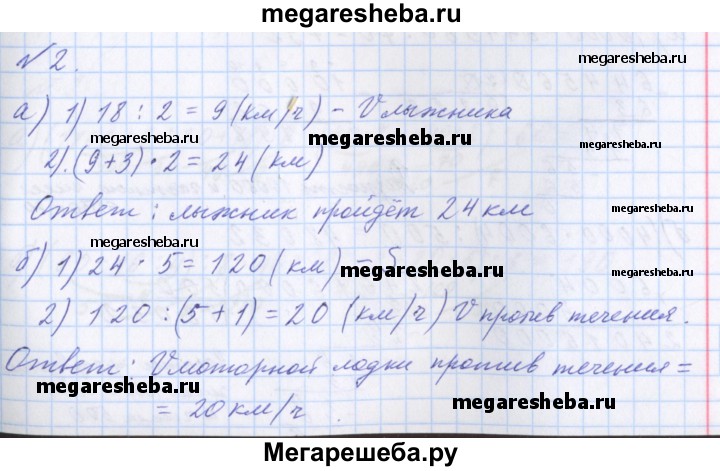 megaresheba.ru
№ 2.
megaresheba.ru
а) 1) 18 : 2 = 9 (км/ч) – V лыжника
megaresheba.ru
megaresheba.ru
2). (9+3) · 2 = 24 (км)
megaresheba.ru
Ответ: лыжник пройдёт 24 км
megaresheba.ru
б) 1) 24 · 5 = 120 (км) – S
megaresheba.ru
2) 120 : (5 + 1) = 20 (км/ч) V против течения.
Ответ: V моторной лодки против течения =
megaresheba.ru
= 20 км/ч.
megaresheba.ru
Мегарешеба.ру